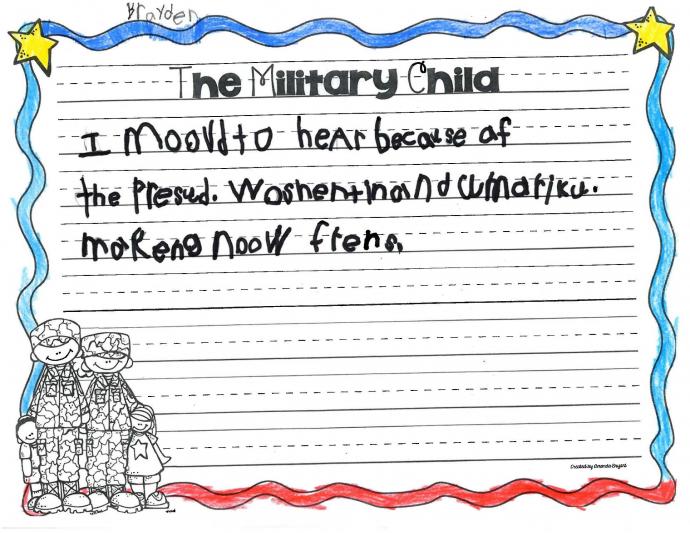 Brayden
The Military Child
I Moovd to hear because af
the Presud. Woshentin and
makeng noow frens.
Created by Amanda Bryant